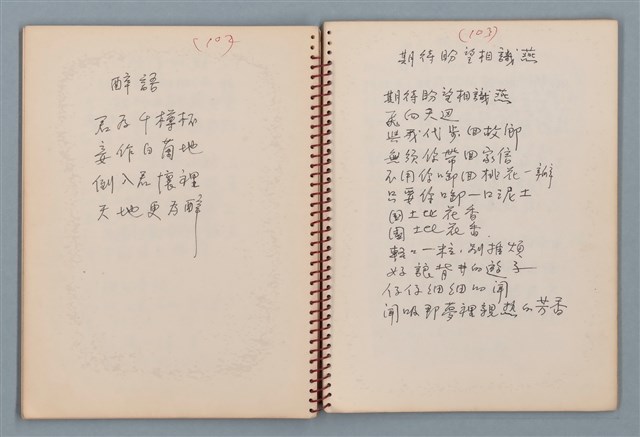 (103
醉語
君为千樽杯
妾作白菊地
倒入君懷裡
天地更为醉
(103)
期待盼望相識燕
期待盼望相識燕
飛向天边
與我代步回故鄉
無須你帶回家信
不用你啣回桃花一瓣
只要你啣一口泥土
国土比花香
國土比花香.
輕口一粒,別推煩
好讓背井的遊子
仔仔细细的闻
闻吸那夢裡親熱的芳香